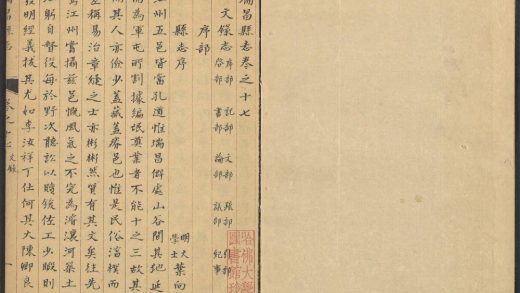 瑞昌縣志卷之十七
文錄志 序部 記部 文部 跋部
啓部 書部 論部 議部 紀事
序部
縣志序 明大學士 葉向
江州五邑皆當孔道惟瑞昌僻處山谷間其地延
為軍屯所割據編氓奠業者不能十之三故其
其人亦儉少蓋藏蓋邑也惟是民俗淳樸而
稱易治章縫之士亦彬彬然質有其文矣往先
江州嘗攝茲邑慨風氣之不完為濬瀼河築土
躬自督役每於野次聽訟以贖鍰佐工少暇則
發明經義拔其尤如李汝祥丁仕何其大陳卿良
卷之十七 文錄 一
哈佛大學
圖書館珍